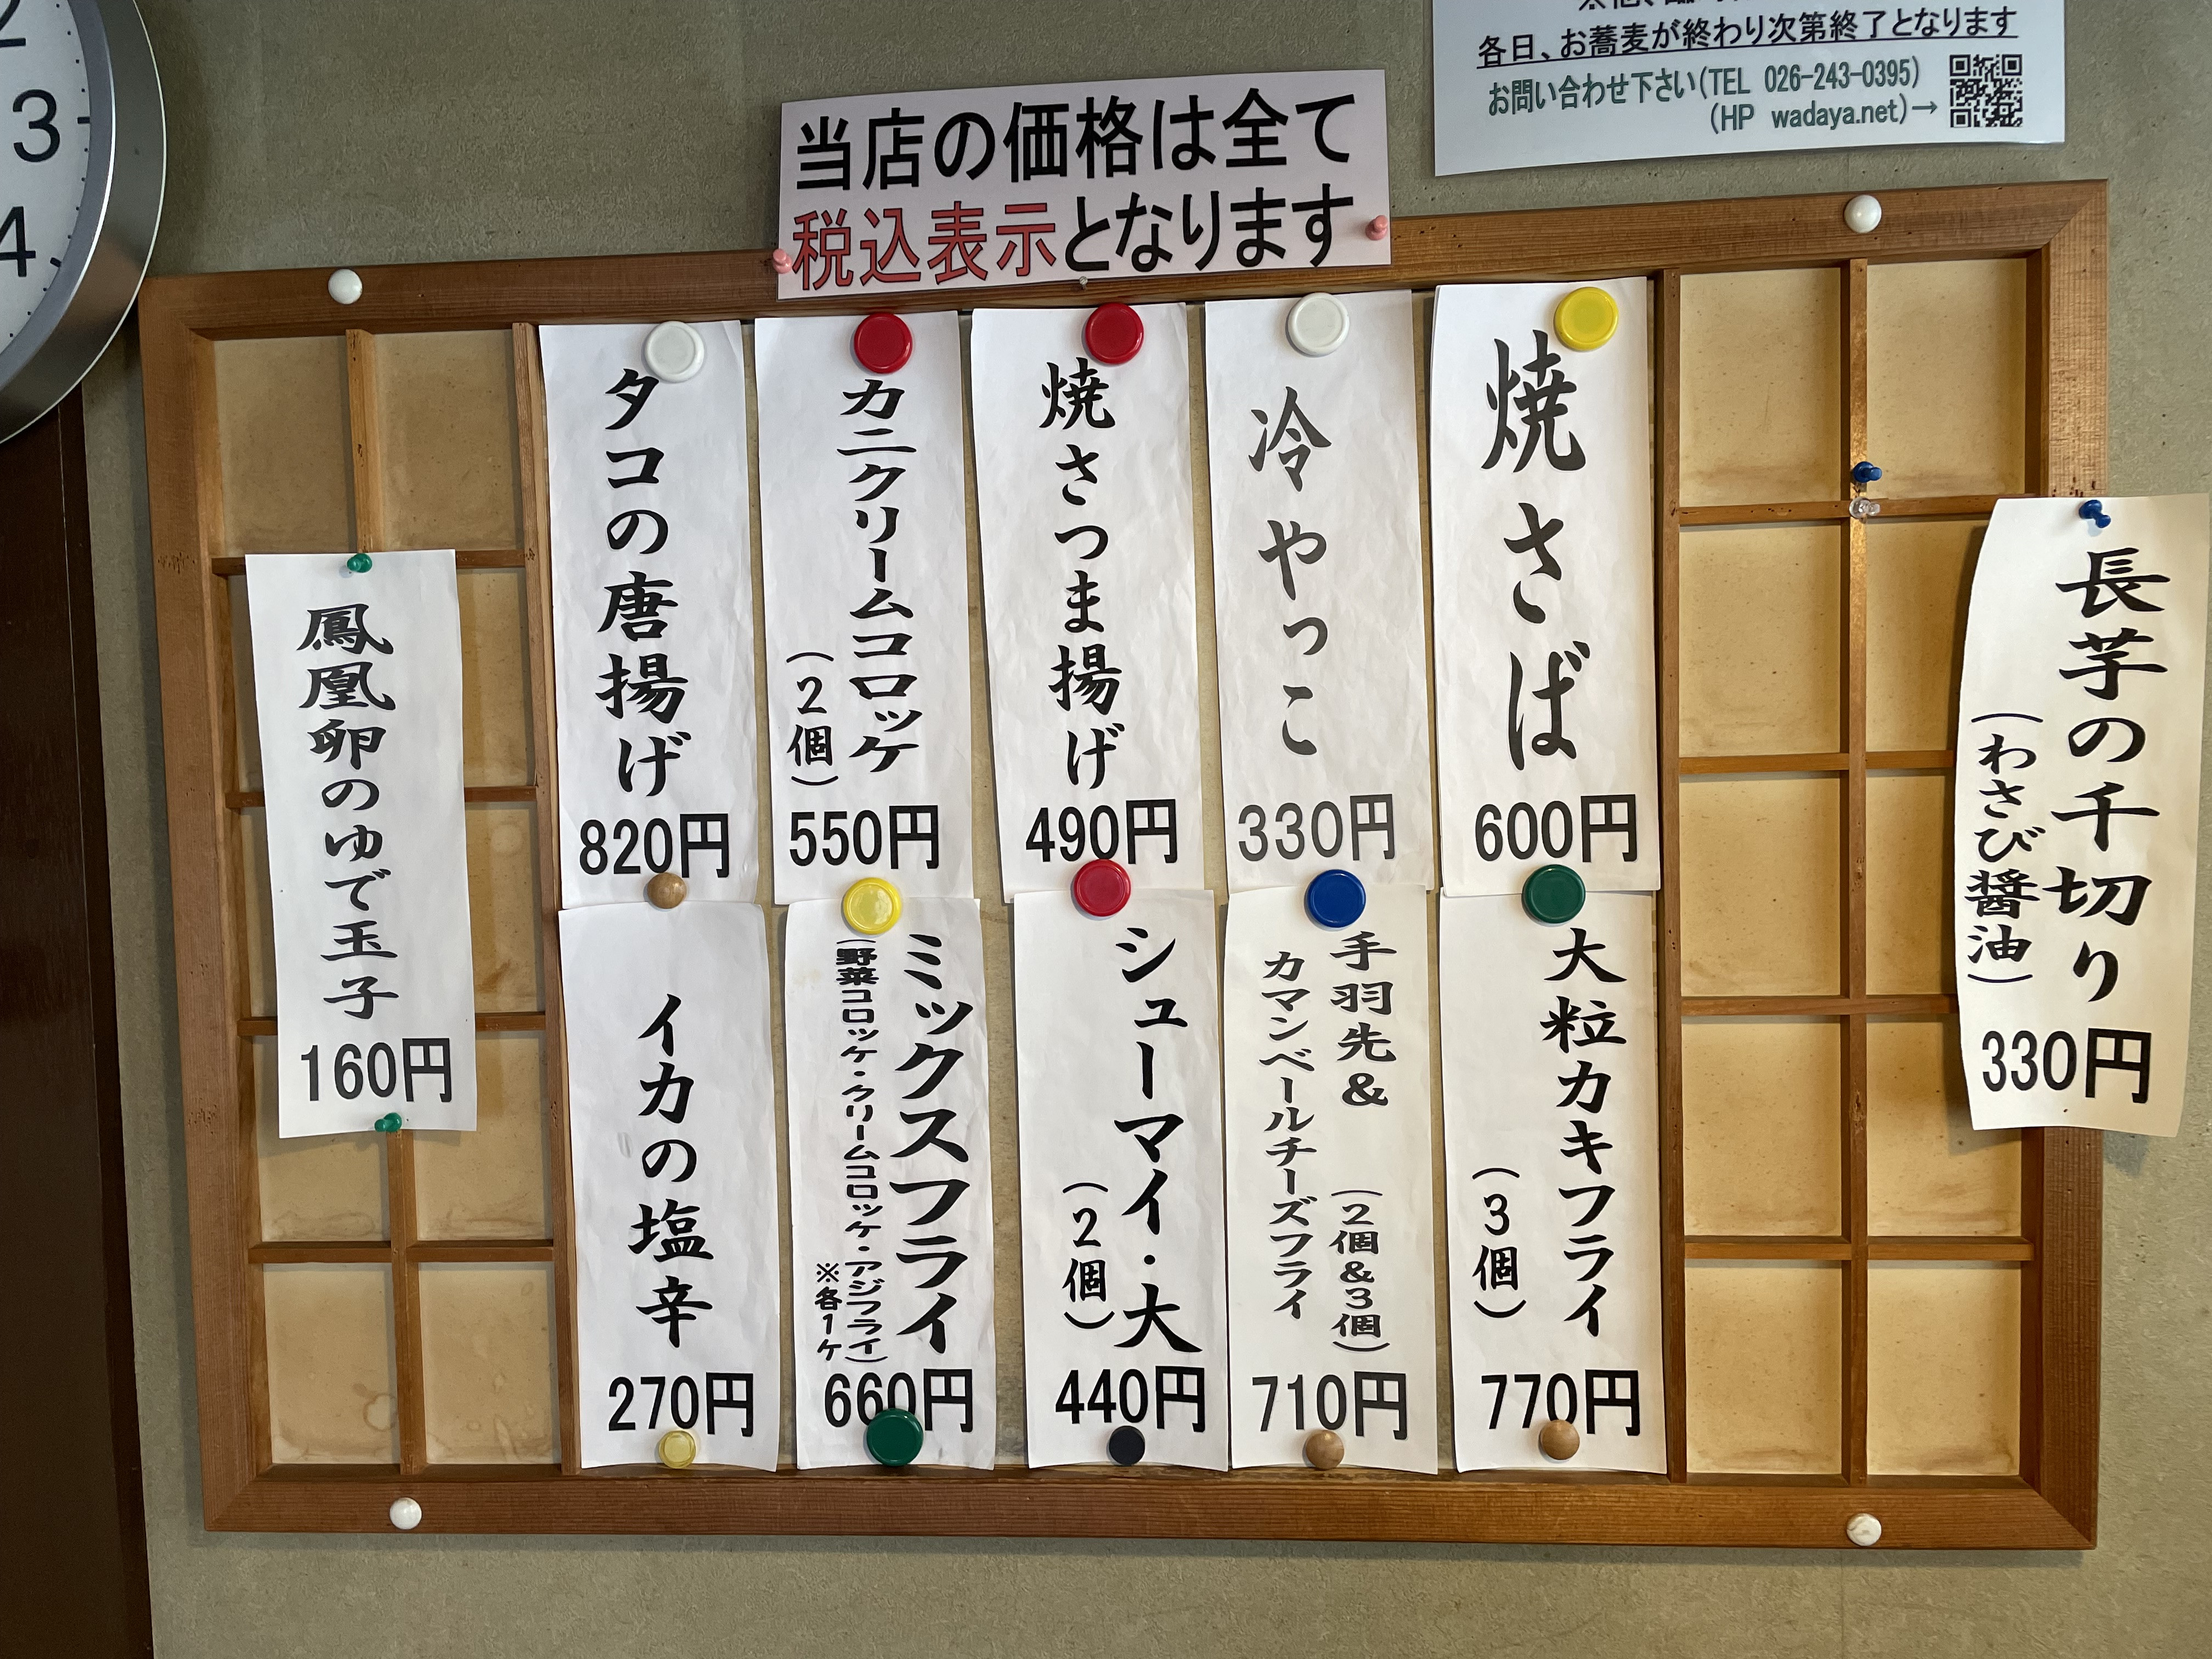 各日、お蕎麦が終わり次第終了となります
お問い合わせ下さい(TEL 026-243-0395)
(HP wadaya.net)→
当店の価格は全て
税込表示となります
2
3
4
長芋の千切り
(わさび醤油)
330円
焼さば
600円
冷やっこ
330円
焼さつま揚げ
490円
カニクリームコロッケ
(2個)
550円
タコの唐揚げ
820円
大粒カキフライ
(3個)
770円
手羽先&
(2個&3個)
カマンベールチーズフライ
710円
シューマイ・大
(2個)
440円
ミックスフライ
(野菜コロッケ・クリームコロッケ・アジフライ)
※各1ケ
660円
イカの塩辛
270円
鳳凰卵のゆで玉子
160円